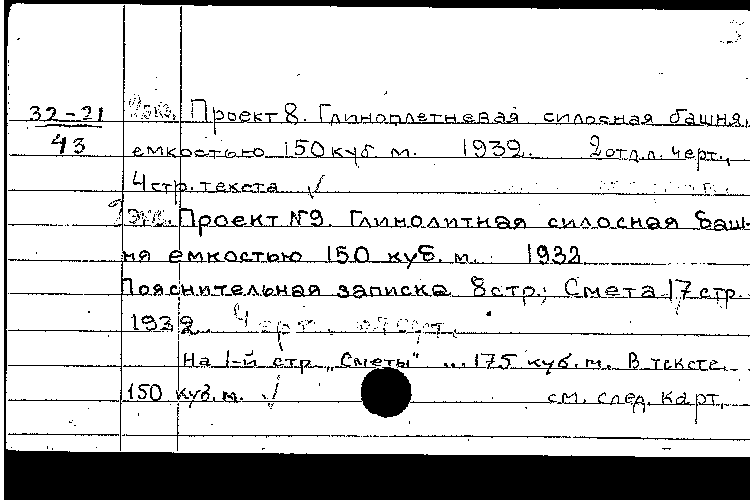 32-21
43
2 экз. Проект 8. Глиноплетневая силосная башня,
емкостью 150 куб. м. 1932. 2 отд.л. черт.,
4 стр. текста √
Экз. Проект №9. Глинолитная силосная баш-
ня емкостью 150 куб. м. 1932
Пояснительная записка 8 стр.; Смета 17 стр.
1932. Черт. отсут.
На 1-й стр. „Сметы" ... 175 куб. м. В тексте
150 куб. м. √ см. след. карт.